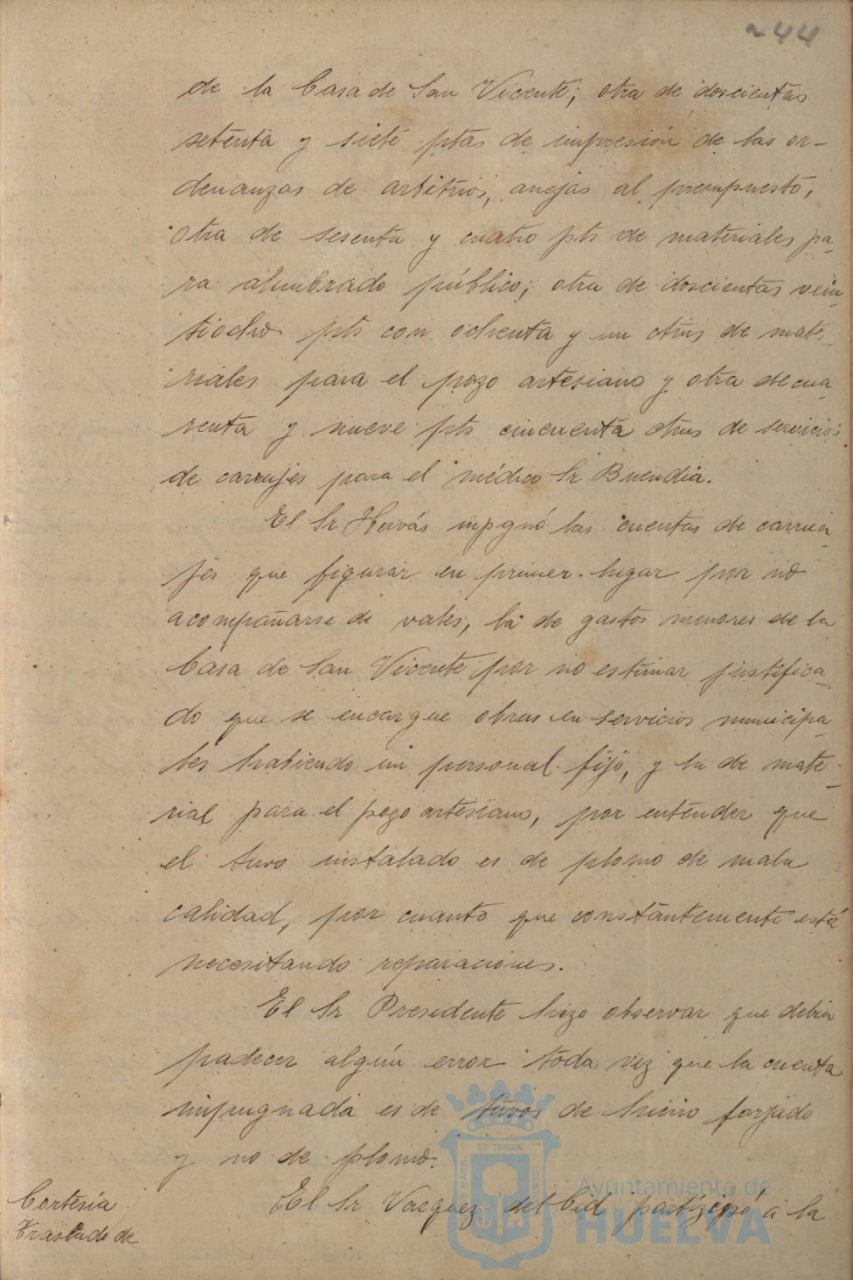 44
de la Casa de San Vicente; otra de doscientas
setenta y siete ptas de impresión de las or-
denanzas de arbitrios, anejas al presupuesto;
otra de sesenta y cuatro pts de materiales pa-
ra alumbrado público; otra de doscientas vein-
tiocho pts con ochenta y un ctms de mate-
riales para el pozo artesiano y otra de cua-
renta y nueve pts cincuenta ctms de servicios
de carruajes para el médico Sr Buendia.
El Sr Hervás inpgnó las cuentas de carrua-
jes que figurar en primer lugar por no
acompañarse de vales, la de gastos menores de la
Casa de San Vicente por no estimar justifica-
do que se encargue obras en servicios municipa-
les habiendo un personal fijo, y la de mate-
rial para el pozo artesiano, por entender que
el tuvo instalado es de plomo de mala
calidad, por cuanto que constantemente está
necesitando reparaciones.
El Sr Presidente hizo observar que debia
padecer algún error toda vez que la cuenta
impugnada es de tuvos de hierro forjado
y no de plomo.
Cortesía
El Sr Vazquez del Cid participó a la
Traslado de
Ayuntamiento de
HUELVA